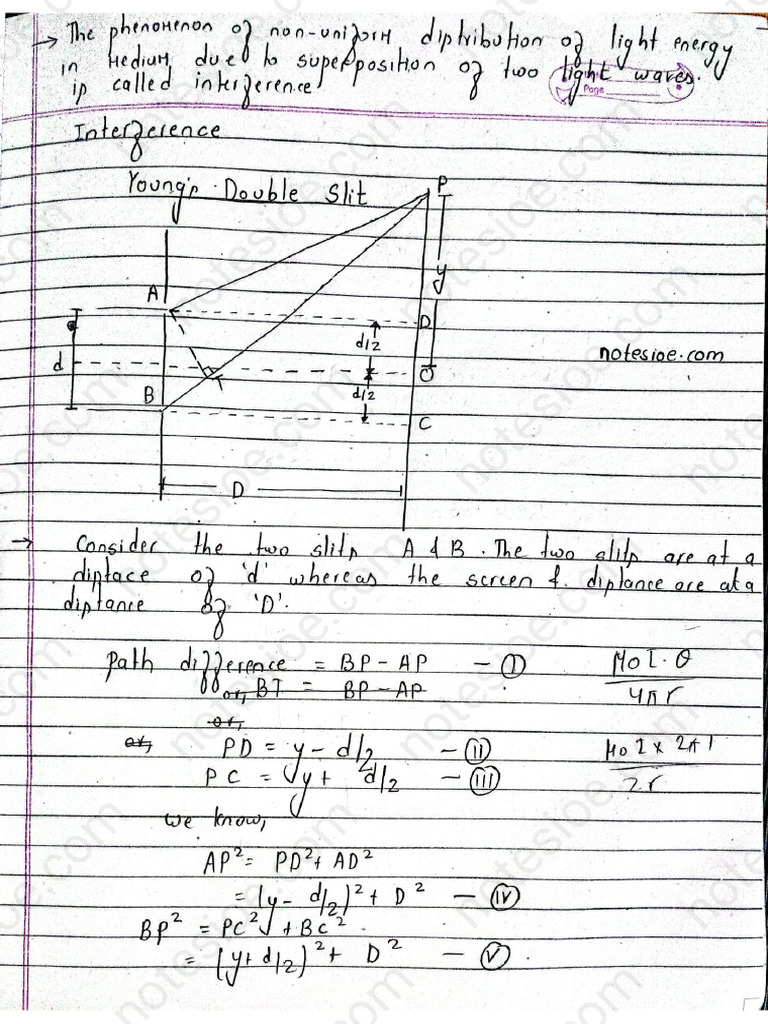 → The phenomenon of non-uniform diptribution of light energy
in medium due to superposition of two light waves.
ip called interference
Page
Interference
Young'p Double Slit
P
y
A
D
d/2
notesioe.com
d
O
d/2
B
T
C
D
→ Consider the two slitp A & B. The two slitp are at a
diptace of 'd' whereas the screen &. diptance are at a
diptance of 'D'.
Path difference = BP - AP - (I)
μo I · θ
4πr
or, BT = BP - AP
or,
or, PD = y - d/2 - (II)
PC = y + d/2 - (III)
μo I x 2π1
2r
we know,
AP² = PD² + AD²
= (y - d/2)² + D² - (IV)
BP² = PC² + BC²
= (y + d/2)² + D² - (V).